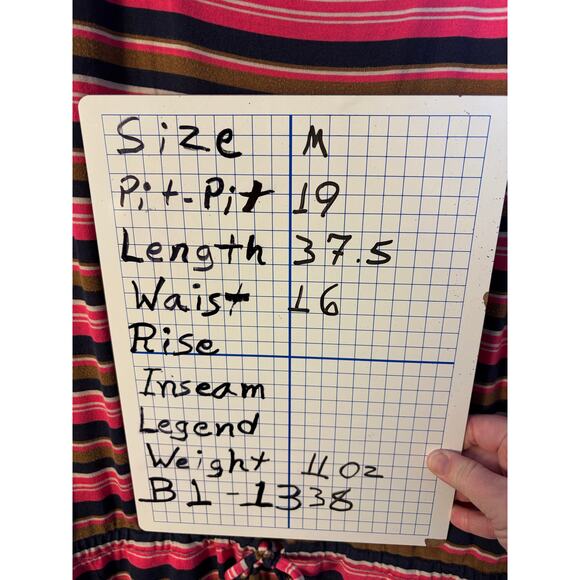 Size M
Pit-Pit 19
Length 37.5
Waist 16
Rise
Inseam
Legend
Weight 11 oz
B1-1338